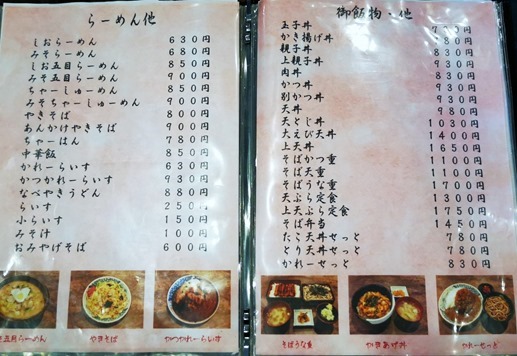 らーめん他
しおらーめん 630円
みそらーめん 680円
しお五目らーめん 850円
みそ五目らーめん 900円
ちゃーしゅーめん 850円
みそちゃーしゅーめん 900円
やきそば 800円
あんかけやきそば 900円
ちゃーはん 780円
中華飯 850円
かれーらいす 630円
かつかれーらいす 930円
なべやきうどん 880円
らいす 250円
小らいす 150円
みそ汁 100円
おみやげそば 600円
五目らーめん
やきそば
かつかれーらいす
御飯物・他
玉子丼
かき揚げ丼 780円
親子丼 830円
上親子丼 930円
肉丼 900円
かつ丼 900円
別かつ丼 930円
天丼 980円
天とじ丼 1030円
大えび天丼 1400円
上天丼 1650円
そばかつ重 1100円
そば天重 1100円
そばうな重 1700円
天ぷら定食 1300円
上天ぷら定食 1750円
そば弁当 1450円
たこ天丼せっと 780円
とり天丼せっと 780円
かれーせっと 830円
そばうな重
かきあげ丼
かれーせっと